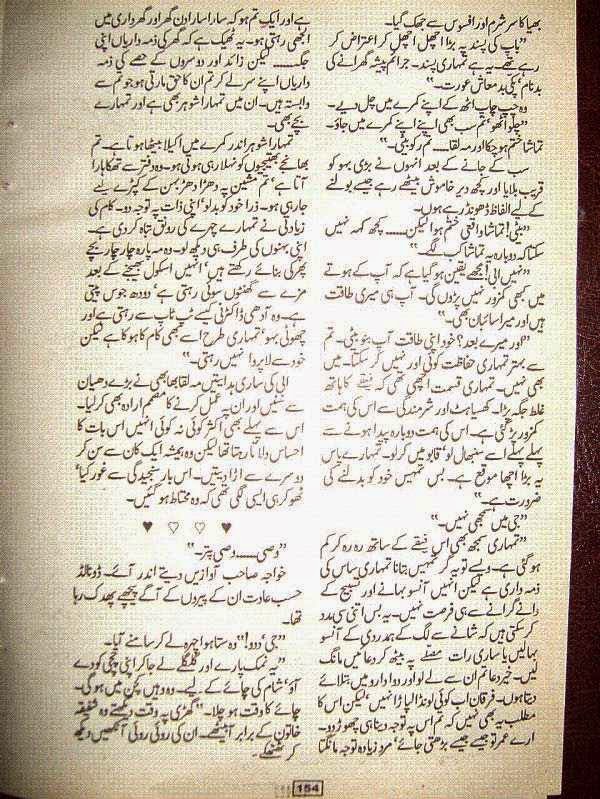 بھیا کا سر شرم اور افسوس سے جھک گیا۔
”باپ کی پسند پہ بڑا اچھل اچھل کر اعتراض کر
رہے تھے۔ یہ ہے تمہاری پسند۔ جرائم پیشہ گھرانے کی
بدنام، پکی بدمعاش عورت۔“
وہ جب چاپ اٹھ کے اپنے کمرے میں چل دیے۔
”چلو اٹھو، تم سب بھی اپنے اپنے کمرے میں جاؤ۔
تماشا ختم ہو چکا اور مہ لقا.... تم رکو بیٹی۔“
سب کے جانے کے بعد انہوں نے بڑی بہو کو
قریب بلایا اور کچھ دیر خاموش بیٹھے رہے جیسے بولنے
کے لیے الفاظ ڈھونڈ رہے ہوں۔
”بیٹی! تماشا واقعی ختم ہوا لیکن..... کچھ کہہ نہیں
سکتا کہ دوبارہ یہ تماشا کب لگے۔“
”نہیں ابی! مجھے یقین ہو گیا ہے کہ آپ کے ہوتے
میں کبھی کمزور نہیں پڑوں گی۔ آپ ہی میری طاقت
ہیں اور میرا سائبان بھی۔“
”اور میرے بعد؟ خود اپنی طاقت آپ بنو بیٹی۔ تم
سے بہتر تمہاری حفاظت کوئی اور نہیں کر سکتا۔ میں
بھی نہیں۔ تمہاری قسمت اچھی تھی کہ نیفے کا ہاتھ
غلط جگہ پڑا۔ کھسیاہٹ اور شرمندگی سے اس کی ہمت
کمزور پڑ گئی ہے۔ اس کی ہمت دوبارہ پیدا ہونے سے
پہلے پہلے اسے سنبھال لو، قابو میں کر لو۔ تمہارے پاس
یہ بڑا اچھا موقع ہے۔ بس تمہیں خود کو بدلنے کی
ضرورت ہے۔“
”جی میں سمجھی نہیں۔“
”تمہاری سمجھ بھی اس نیفے کے ساتھ رہ رہ کر کم
ہو گئی ہے۔ ویسے تو یہ گر تمہیں بتانا تمہاری ساس کی
ذمہ داری ہے لیکن انہیں آنسو بہانے اور تسبیح کے
دانے گرانے سے ہی فرصت نہیں۔ یہ بس اتنی سی مدد
کر سکتی ہیں کہ شانے سے لگ کے ہمدردی کے آنسو
بہالیں یا ساری رات مصلے پہ بیٹھ کر دعائیں مانگ
لیں۔ خیر دعا تم ان سے لے لو اور دوا دارو میں بتلائے
دیتا ہوں۔ فرقان اب کوئی لونڈا لپاڑا نہیں، لیکن اس کا
مطلب یہ بھی نہیں کہ تم اس پہ توجہ دینا ہی چھوڑ دو۔
ارے عمر تو جیسے جیسے بڑھتی جائے، مرد زیادہ توجہ مانگتا
ہے اور ایک تم ہو کہ سارا سارا دن گھر اور گھرداری میں
الجھی رہتی ہو۔ یہ ٹھیک ہے کہ گھر کی ذمہ داریاں اپنی
جگہ.... لیکن زائد اور دوسروں کے حصے کی ذمہ
داریاں اپنے سر لے کر تم ان کا حق مارتی ہو جو تم سے
وابستہ ہیں۔ ان میں تمہارا شوہر بھی ہے اور تمہارے
بچے بھی۔
تمہارا شوہر اندر کمرے میں اکیلا بیٹھا ہوتا ہے۔ تم
بھانجے بھتیجوں کو نہلا رہی ہوتی ہو۔ وہ دفتر سے تھکا ہارا
آتا ہے، تم مشین پہ دھڑا دھڑ بہن کے کپڑے سیے
جا رہی ہو۔ ذرا خود کو بدلو، اپنی ذات پہ توجہ دو۔ کام کی
زیادتی نے تمہارے چہرے کی رونق تباہ کر دی ہے۔
اپنی بہنوں کی طرف ہی دیکھ لو۔ وہ مہ پارہ چار چار بچے
پھرکی بنائے رکھتے ہیں، انہیں اسکول بھیجنے کے بعد
مزے سے گھنٹوں سوئی رہتی ہے، دودھ جوس پیتی
ہے۔ وہ آدھی ڈاکٹرنی کیسے ٹپ ٹاپ سے رہتی ہے اور
چھوٹی بہو، تمہاری طرح اسے بھی کام کا ہوکا ہے لیکن
خود سے لاپروا نہیں رہتی۔“
ابی کی ساری ہدایتیں مہ لقا بھابھی نے بڑے دھیان
سے سنیں اور ان پہ عمل کرنے کا مصمم ارادہ بھی کر لیا۔
اس سے پہلے بھی اکثر کوئی نہ کوئی انہیں اس بات کا
احساس دلاتا رہتا تھا لیکن وہ ہمیشہ ایک کان سے سن کر
دوسرے سے اڑا دیتیں۔ اس بار سنجیدگی سے غور کیا،
ٹھوکر ہی ایسی لگی تھی کہ وہ محتاط ہو گئیں۔
♥ ♡ ♡ ♥
”وصی..... وصی پتر۔“
خواجہ صاحب آوازیں دیتے اندر آئے۔ ڈونالڈ
حسب عادت ان کے پیروں کے آگے پیچھے پھدک رہا
تھا۔
”جی، دوا!“ وہ ستا ہوا چہرہ لے کر سامنے آیا۔
”یہ نمک پارے اور گلگلے لے جا کر اپنی چچی کو دے
آؤ، شام کی چائے کے لیے۔ وہ وہیں کچن میں ہو گی۔
چائے کا وقت ہو چلا۔“ گھڑی پہ وقت دیکھتے وہ شفیقہ
خاتون کے برابر آ بیٹھے۔ ان کی روئی روئی آنکھیں دیکھ
کر ٹھٹھکے۔
154